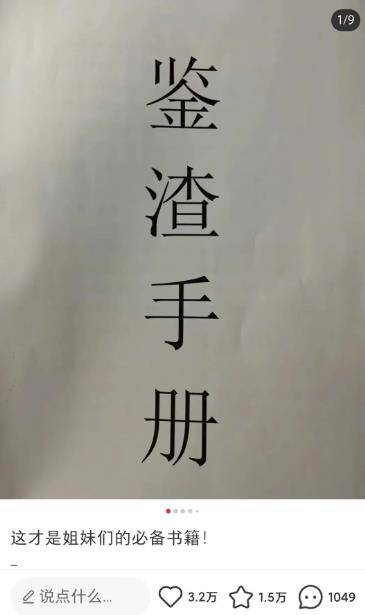 1/9
鉴
渣
手
册
这才是姐妹们的必备书籍！
–
说点什么...
3.2万
1.5万
1049